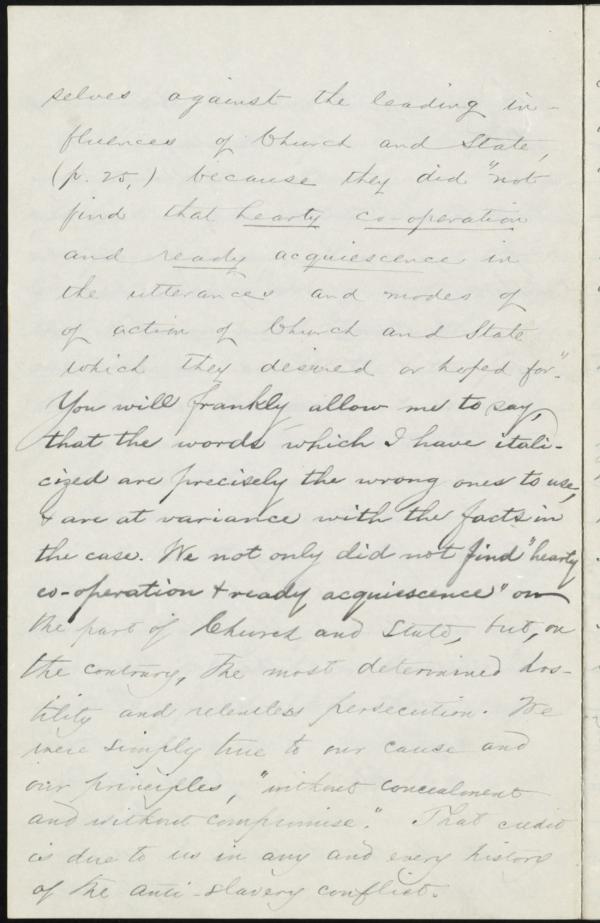 selves against the leading in-
fluences of Church and State,
(p. 25,) because they did "not
find that hearty co-operation
and ready acquiescence in
the utterances and modes of
of action of Church and State
which they desired or hoped for."
You will frankly allow me to say,
that the words which I have itali-
cized are precisely the wrong ones to use,
& are at variance with the facts in
the case. We not only did not find "hearty
co-operation & ready acquiescence" on
the part of Church and State, but, on
the contrary, the most determined hos-
tility and relentless persecution. We
were simply true to our cause and
our principles, "without concealment
and without compromise." That credit
is due to us in any and every history
of the anti-slavery conflict.